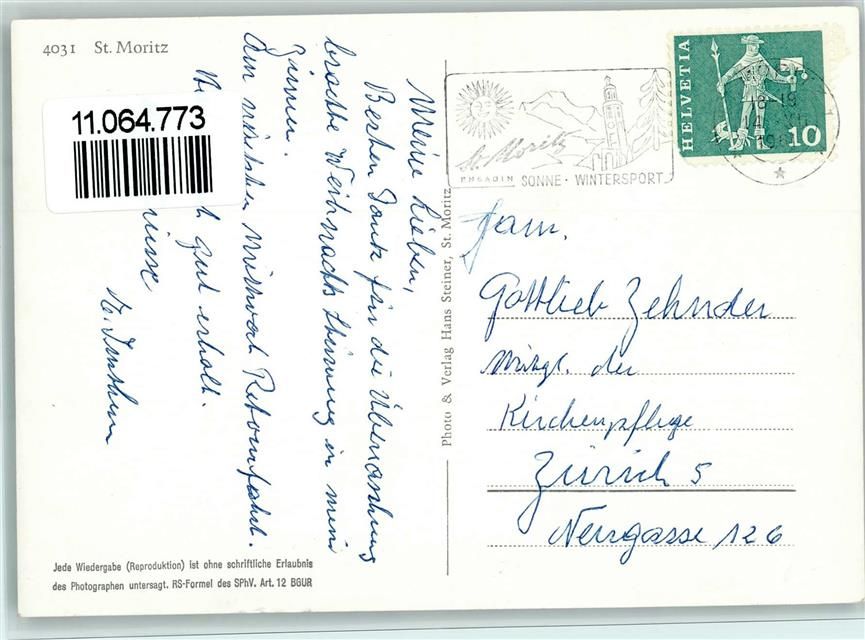 4031 St. Moritz
11.064.773
Meine Lieben,
Besten Dank für die Überraschung
brachte Weihnachts Stimmung in mein
Zimmer.
Am nächsten Mittwoch Retourfahrt.
gut erhalt.
Photo & Verlag Hans Steiner, St. Moritz
St. Moritz
ENGADIN SONNE · WINTERSPORT
HELVETIA
10
Fam.
Gottlieb Zehnder
Mitgl. der
Kirchenpflege
Zürich 5
Neugasse 126
Jede Wiedergabe (Reproduktion) ist ohne schriftliche Erlaubnis
des Photographen untersagt. RS-Formel des SPhV. Art. 12 BGUR